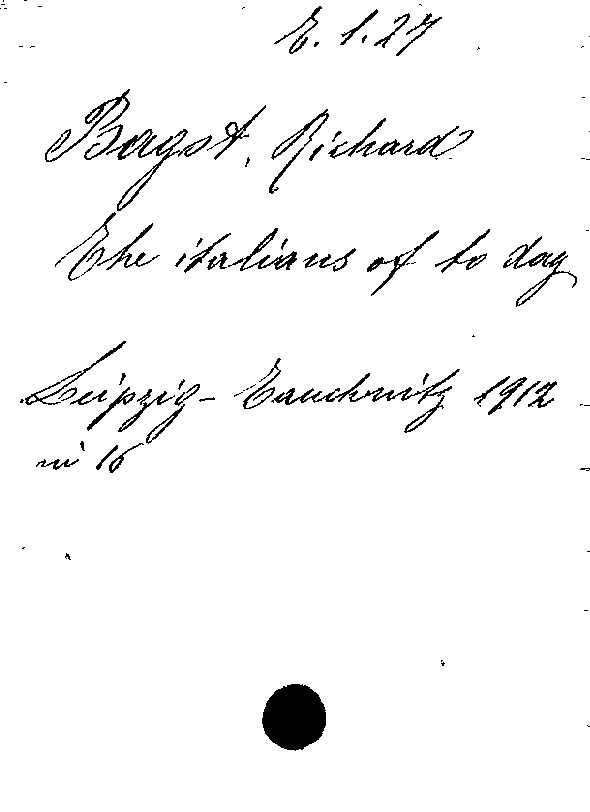 E. 1. 27
Bagst, Richard
The italians of to day
Leipzig - Tauchnitz 1912
in 16